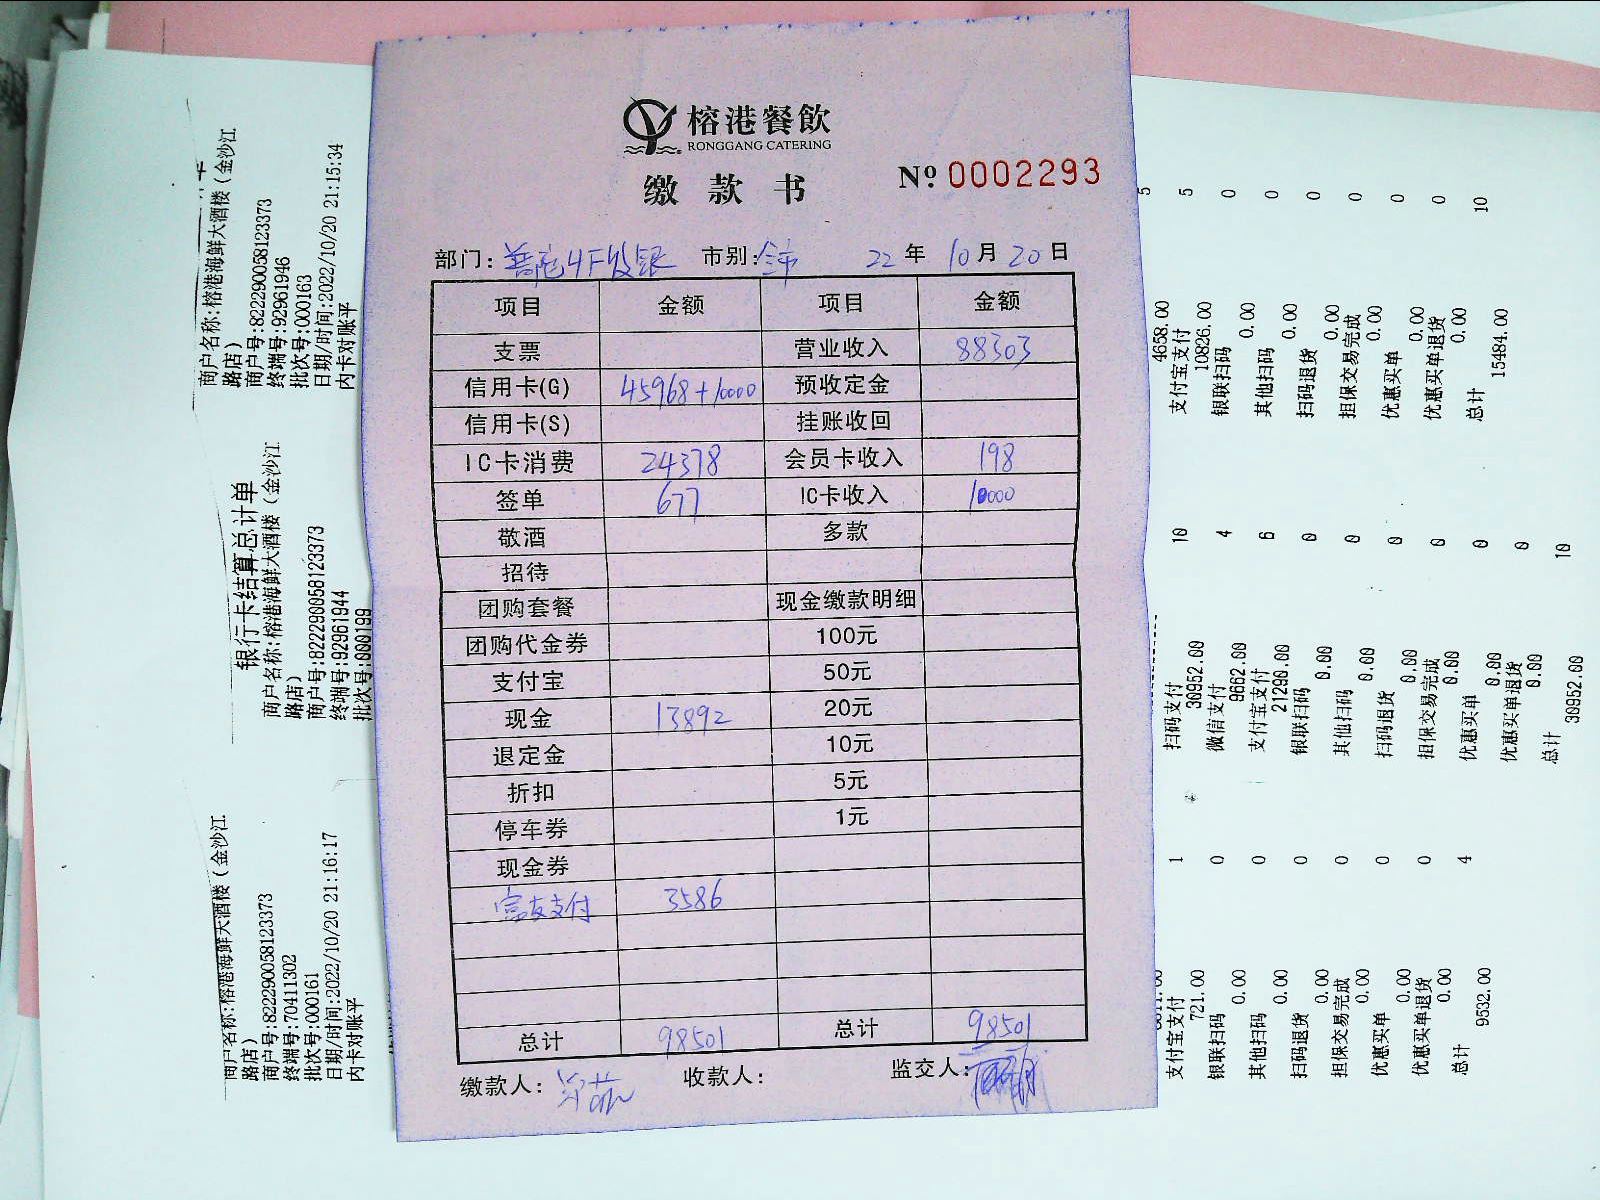 榕港餐飲
RONGGANG CATERING
缴款书
№ 0002293
部门: 普陀4F收银 市别: 全市 22年10月20日
项目 金额 项目 金额
支票 营业收入 88303
信用卡(G) 45968+10000 预收定金
信用卡(S) 挂账收回
IC卡消费 24378 会员卡收入 198
签单 677 IC卡收入 10000
敬酒 多款
招待
团购套餐 现金缴款明细
团购代金券 100元
支付宝 50元
现金 13892 20元
退定金 10元
折扣 5元
停车券 1元
现金券
支付 3586
总计 98501 总计 98501
缴款人: 收款人: 监交人:
商户名称:榕港海鲜大酒楼(金沙江
路店)
商户号:822290058123373
终端号:92961946
批次号:000163
日期/时间:2022/10/20 21:15:34
内卡对账平
5
4658.00
支付宝支付 5
10826.00
银联扫码 0
0.00
其他扫码 0
0.00
扫码退货 0
0.00
担保交易完成 0
0.00
优惠买单 0
0.00
优惠买单退货 0
0.00
总计 10
15484.00
银行卡结算总计单
商户名称:榕港海鲜大酒楼(金沙江
路店)
商户号:822290058123373
终端号:92961944
批次号:000199
扫码支付 10
30952.00
微信支付 4
9662.00
支付宝支付 6
21290.00
银联扫码 0
0.00
其他扫码 0
0.00
扫码退货 0
0.00
担保交易完成 0
0.00
优惠买单 0
0.00
优惠买单退货 0
0.00
总计 10
30952.00
商户名称:榕港海鲜大酒楼(金沙江
路店)
商户号:822290058123373
终端号:70411302
批次号:000161
日期/时间:2022/10/20 21:16:17
内卡对账平
支付宝支付 1
721.00
银联扫码 0
0.00
其他扫码 0
0.00
扫码退货 0
0.00
担保交易完成 0
0.00
优惠买单 0
0.00
优惠买单退货 0
0.00
总计 4
9532.00